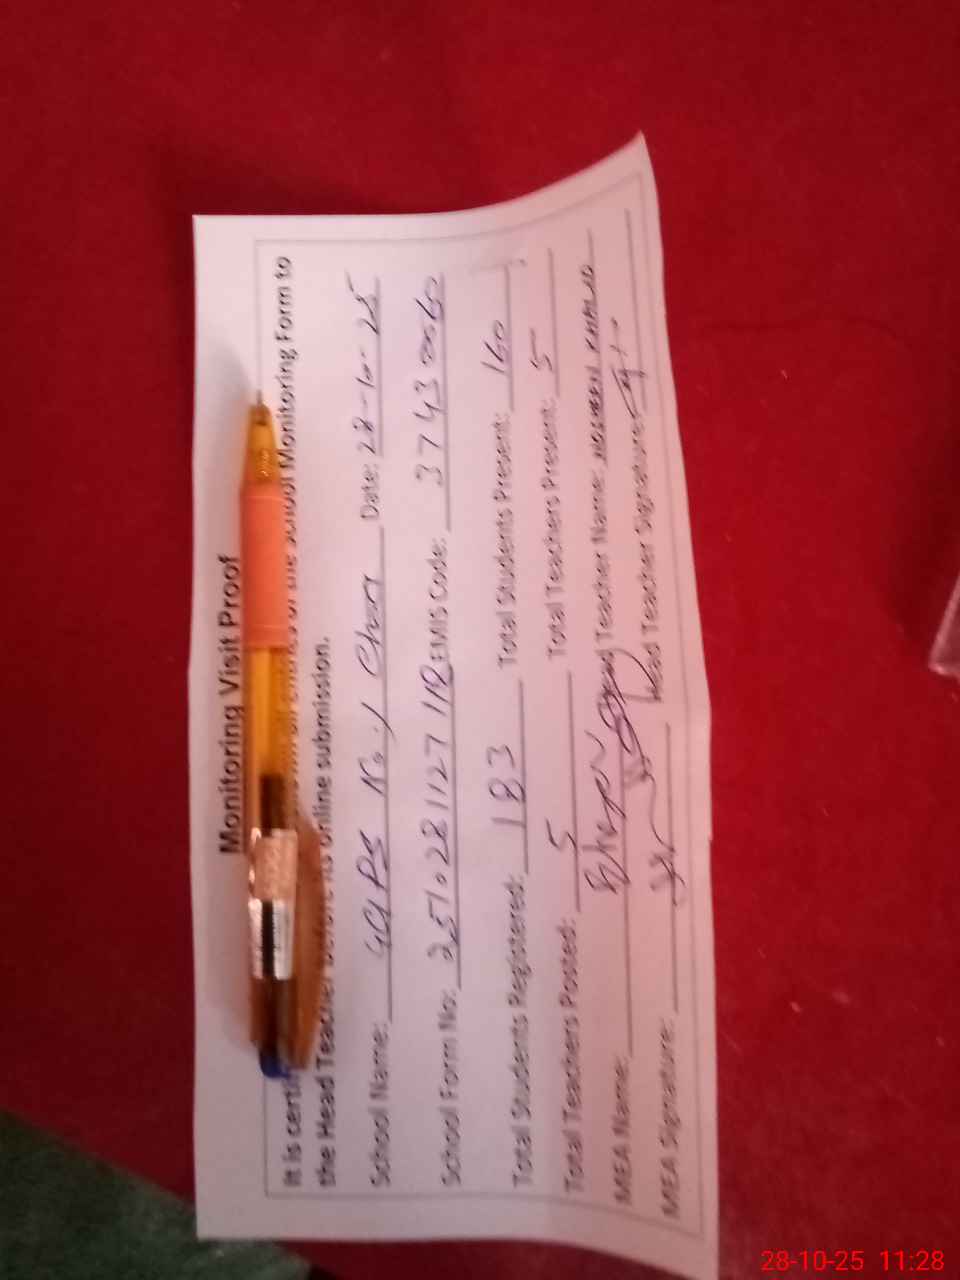 Monitoring Visit Proof
It is all entries of the School Monitoring Form to
the Head Teacher before its online submission.
School Name: GGPS No. 1 Date: 28-10-25
School Form No: EMIS Code: 37430060
Total Students Registered: 183 Total Students Present: 160
Total Teachers Posted: 5 Total Teachers Present: 5
MEA Name: Head Teacher Name: NOSHEEN KHALID
MEA Signature: Head Teacher Signature:
28-10-25 11:28